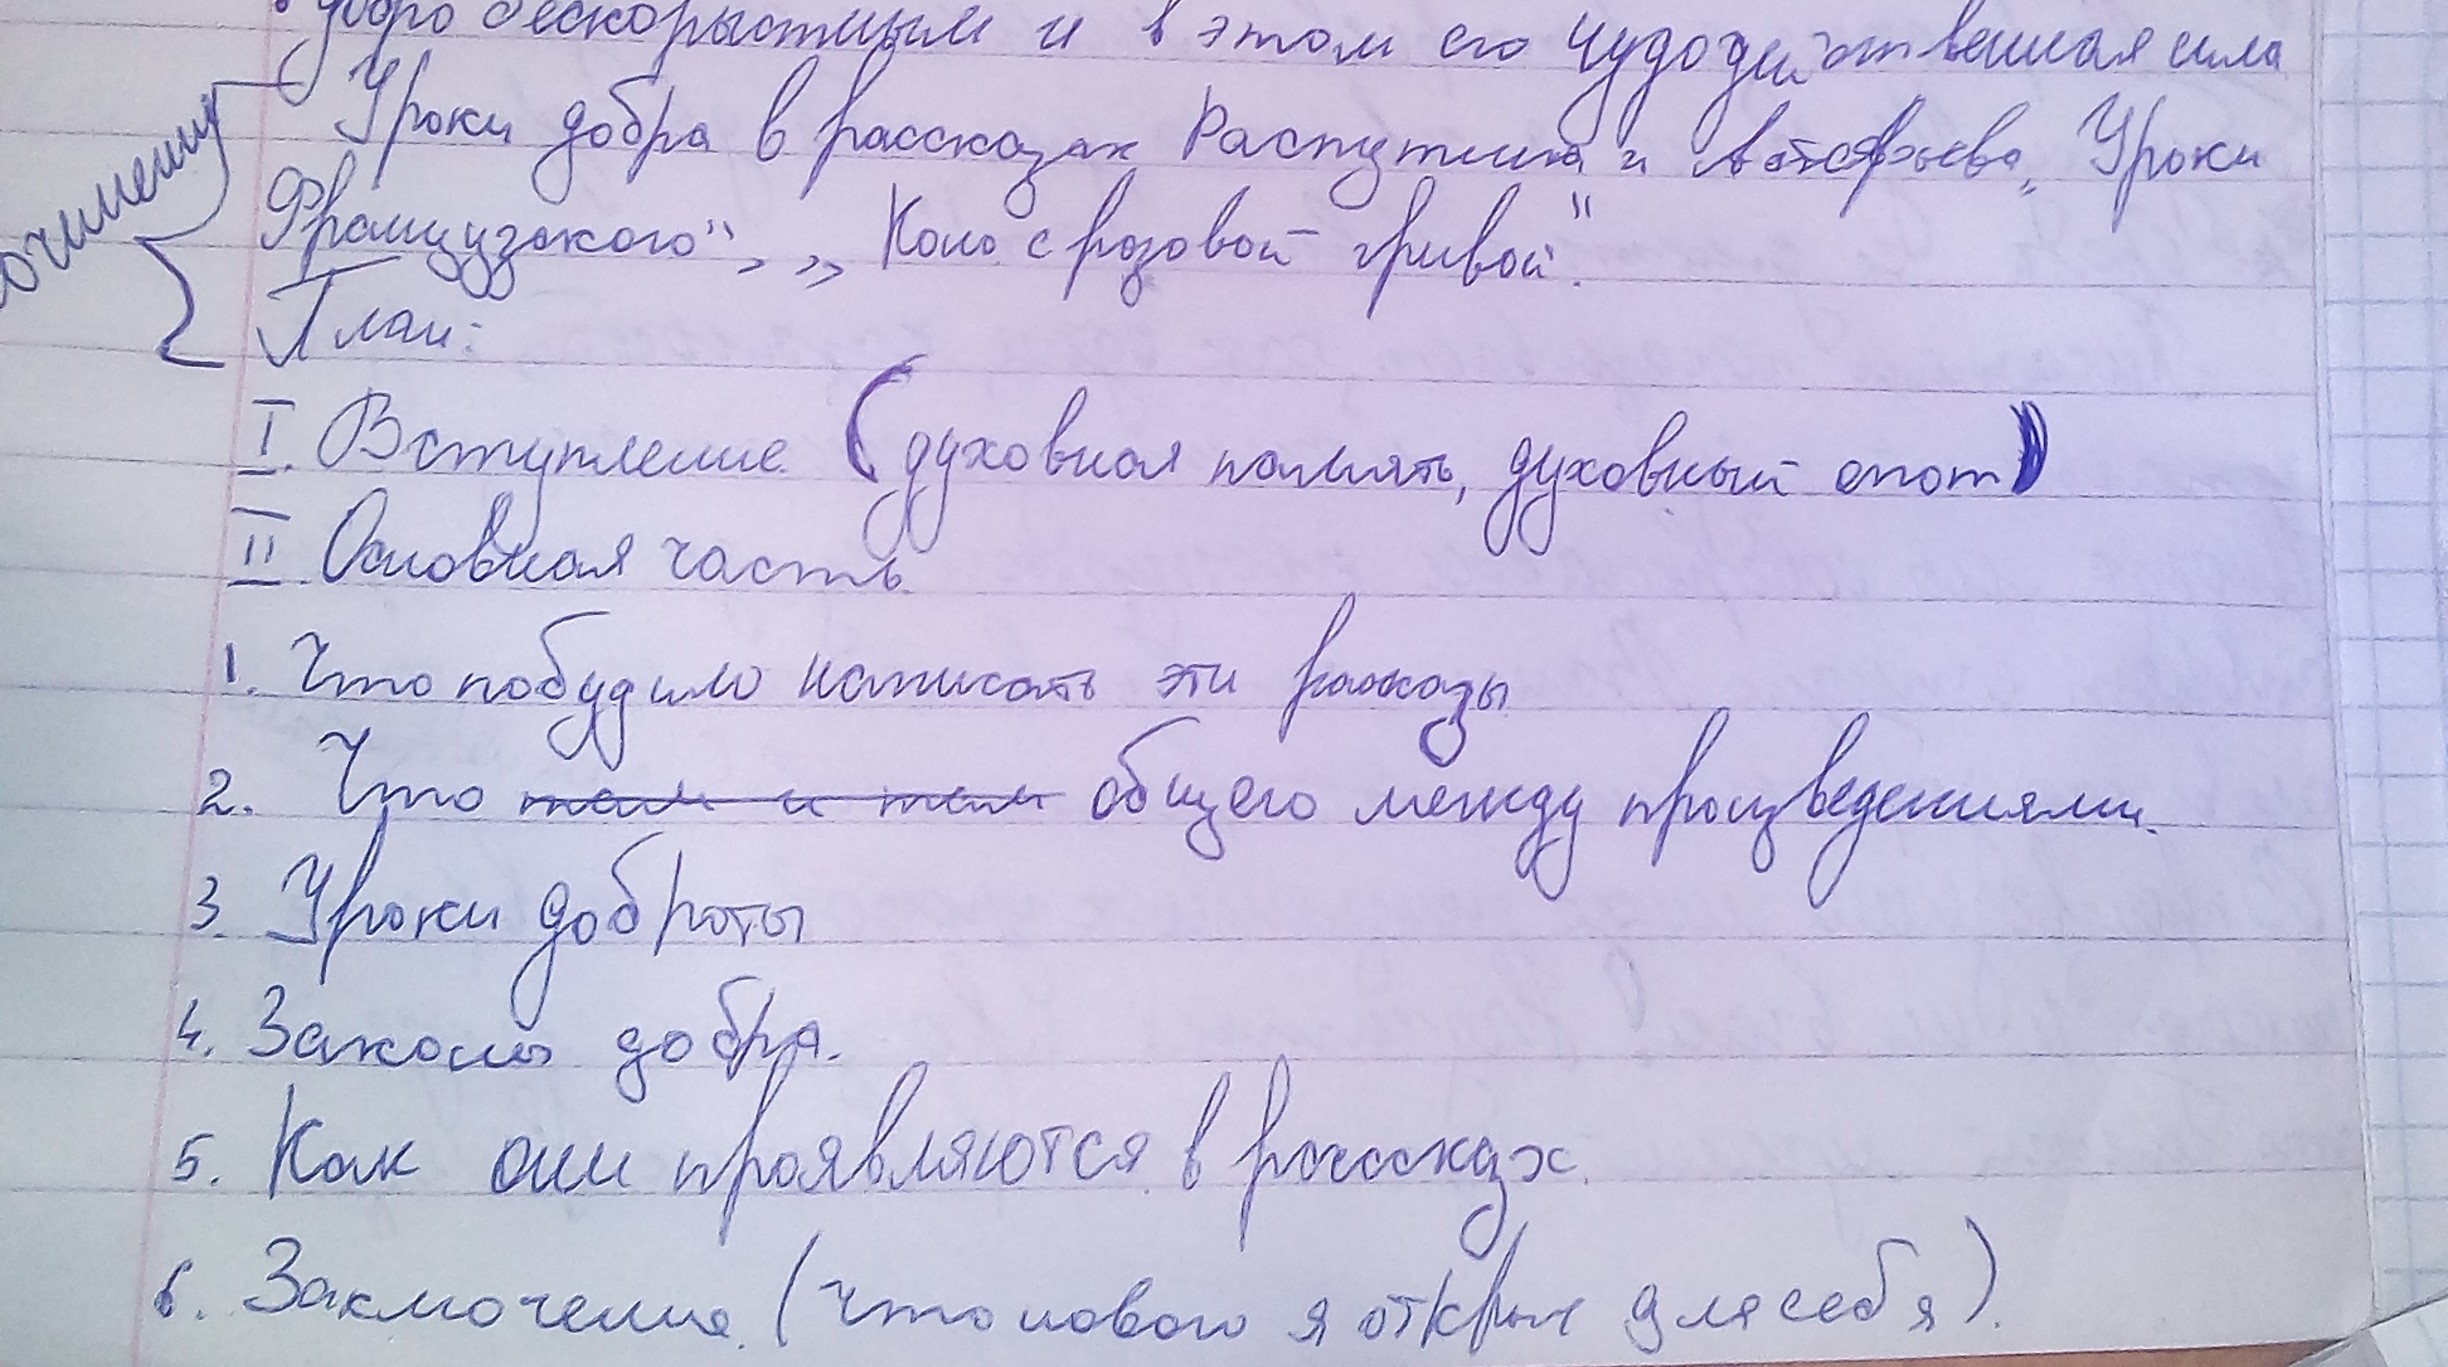 добро бескорыстным и в этом его чудодейственная сила
Уроки добра в рассказах Распутина и Астафьева „Уроки
Французского", „Конь с розовой гривой".
План:
I. Вступление (духовная память, духовный опыт)
II. Основная часть
1. Что побудило написать эти рассказы
2. Что там и там общего между произведениями.
3. Уроки доброты
4. Законы добра.
5. Как они проявляются в рассказах.
6. Заключение. (что нового я открыл для себя).